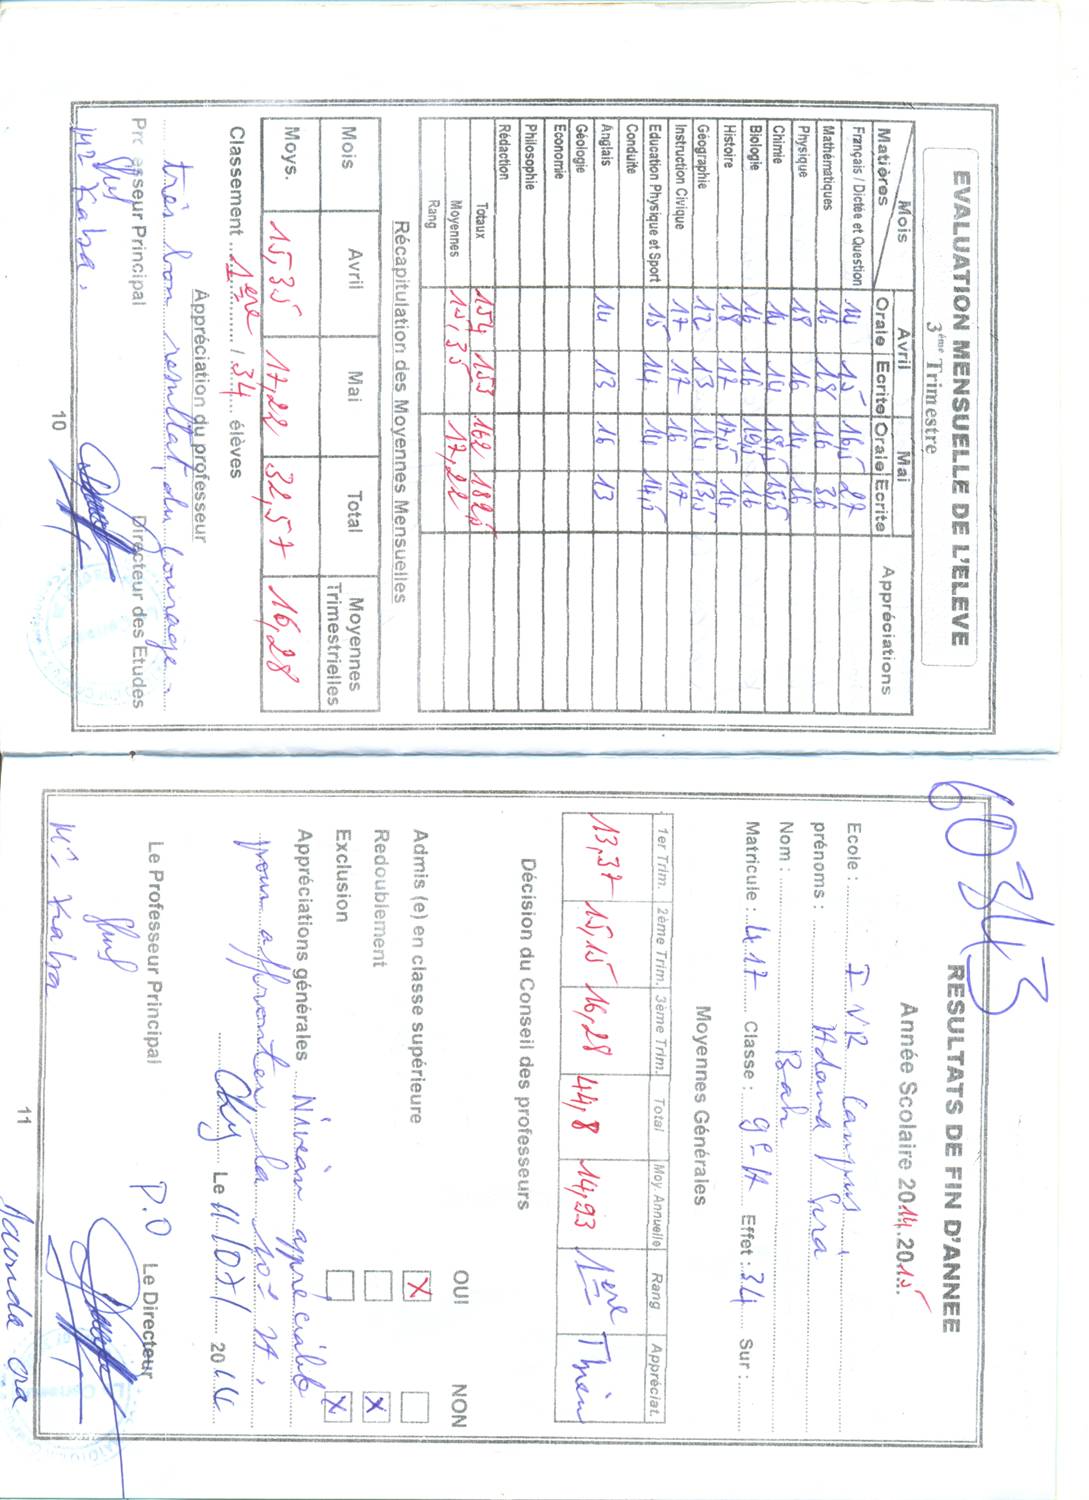 EVALUATION MENSUELLE DE L'ELEVE
3ème Trimestre
Matières Mois Avril Mai Appréciations
Orale Ecrite Orale Ecrite
Français / Dictée et Question 14 15 16,5 27
Mathématiques 16 18 16 36
Physique 18 16 14 16
Chimie 14 14 18,5 15,5
Biologie 16 16 19,5 16
Histoire 18 17 17,5 14
Géographie 12 13 14 13,5
Instruction Civique 17 17 16 17
Education Physique et Sport 15 14 14 14,5
Conduite
Anglais 14 13 16 13
Géologie
Economie
Philosophie
Rédaction
Totaux 154 153 162 182,5
Moyennes 15,35 17,22
Rang
Récapitulation des Moyennes Mensuelles
Mois Avril Mai Total Moyennes Trimestrielles
Moys. 15,35 17,22 32,57 16,28
Classement 1ère / 34 élèves
Appréciation du professeur
très bon resultat, du courage
Professeur Principal Directeur des Etudes
Mr Kaba
10
60343
RESULTATS DE FIN D'ANNEE
Année Scolaire 2014.2015
Ecole : Campus
prénoms : Adama Sira
Nom : Bah
Matricule : 417 Classe : 9e A Effet : 34 Sur :
Moyennes Générales
1er Trim. 2ème Trim. 3ème Trim. Total Moy Annuelle Rang Appréciat.
13,37 15,15 16,28 44,8 14,93 1ère T bien
Décision du Conseil des professeurs
OUI NON
Admis (e) en classe supérieure X
Redoublement X
Exclusion X
Appréciations générales Niveau appréciable
pour affronter la 10e A.
Cky Le 11/07/ 20
Le Professeur Principal P.O Le Directeur
Mr Kaba
11